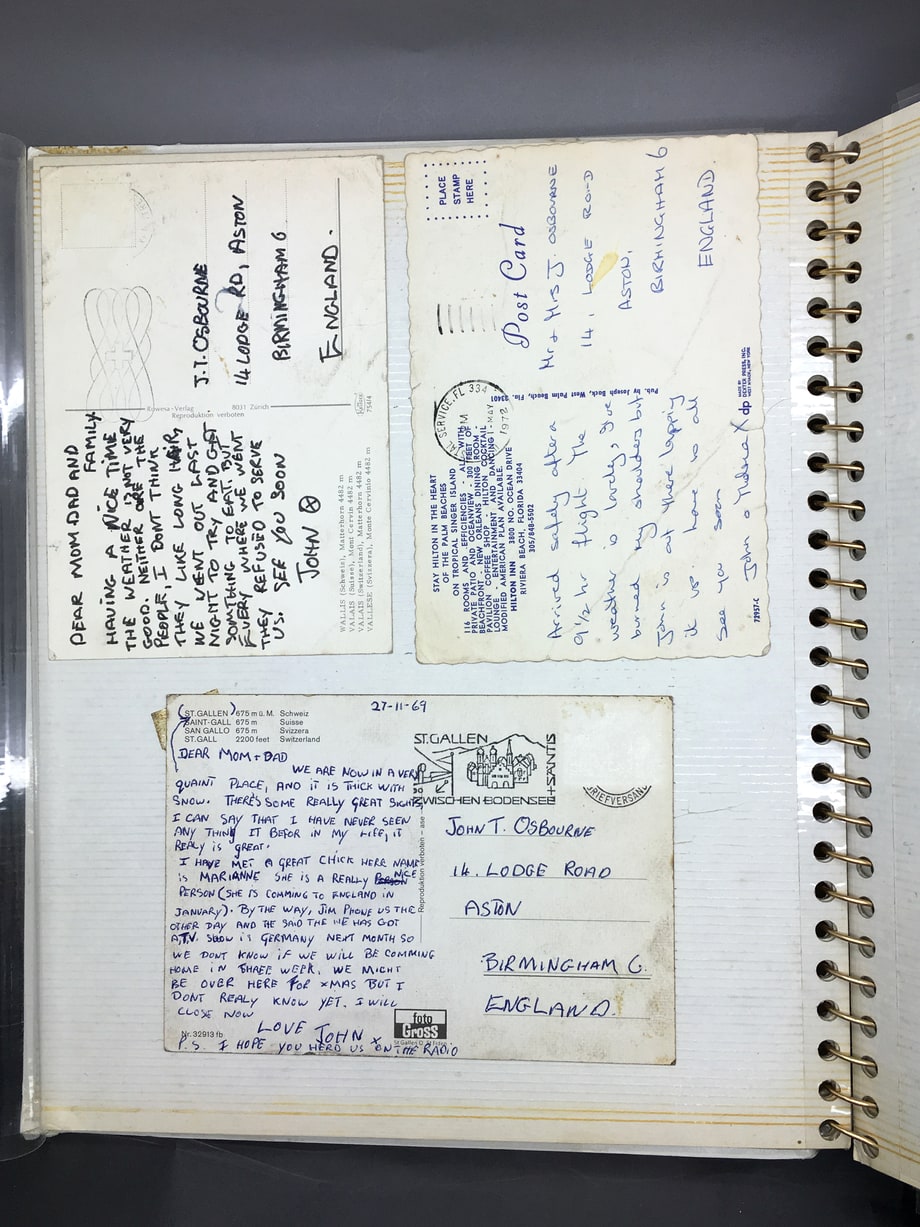 DEAR MOM-DAD AND
FAMILY
HAVING A NICE TIME
THE WEATHER IS NOT VERY
GOOD. NEITHER ARE THE
PEOPLE I DONT THINK
THEY LIKE LONG HAIR,
WE WENT OUT LAST
NIGHT TO TRY AND GET
SOMTHING TO EAT, BUT
EVERY WHERE WE WENT
THEY REFUSED TO SERVE
US. SEE YOU SOON
JOHN
WALLIS (Schweiz), Matterhorn 4482 m
VALAIS (Suisse), Mont Cervin 4482 m
VALAIS (Switzerland), Matterhorn 4482 m
VALLESE (Svizzera), Monte Cervino 4482 m
Rowesa-Verlag 8031 Zürich
Reproduktion verboten
754/4
J.T. OSBOURNE
14 LODGE RD, ASTON
BIRMINGHAM 6
ENGLAND.
STAY HILTON IN THE HEART
OF THE PALM BEACHES
ON TROPICAL SINGER ISLAND
116 ROOMS AND EFFICIENCIES - ALL WITH
PRIVATE PATIO AND OCEANVIEW - 300 FEET OF
BEACHFRONT - NEW ORLEANS DINING ROOM -
PAVILION COFFEE SHOP - HILTON COCKTAIL
LOUNGE - ENTERTAINMENT AND DANCING
MODIFIED AMERICAN PLAN AVAILABLE.
HILTON INN 3800 NO. OCEAN DRIVE
RIVIERA BEACH, FLORIDA 33404
305/848-5592
Arrived safely after a
9 1/2 hr flight. The
weather is lovely, I've
burned my shoulders but
John is at there lapping
it up. love to all
see you soon
John & X
72957-C
Pub. by Joseph Buck, West Palm Beach, Fla. 33401
SERVICE, FL 334
MAY
1972
PLACE
STAMP
HERE
Post Card
Mr & Mrs J. OSBOURNE
14, LODGE ROAD
ASTON,
BIRMINGHAM 6
ENGLAND
MADE BY
dp DEXTER PRESS, INC.
WEST NYACK, NEW YORK
(ST.GALLEN) 675 m ü. M. Schweiz
SAINT-GALL 675 m Suisse
SAN GALLO 675 m Svizzera
ST. GALL 2200 feet Switzerland
27-11-69
DEAR MOM + DAD
WE ARE NOW IN A VERY
QUAINT PLACE, AND IT IS THICK WITH
SNOW. THERE'S SOME REALLY GREAT SIGHTS
I CAN SAY THAT I HAVE NEVER SEEN
ANY THING IT BEFOR IN MY LIFE, IT
REALY IS GREAT.
I HAVE MET A GREAT CHICK HERE NAME
IS MARIANNE SHE IS A REALLY NICE
PERSON (SHE IS COMMING TO ENGLAND IN
JANUARY). BY THE WAY, JIM PHONE US THE
OTHER DAY AND HE SAID THE WE HAS GOT
A T.V. SHOW IS GERMANY NEXT MONTH SO
WE DONT KNOW IF WE WILL BE COMMING
HOME IN THREE WEEK. WE MIGHT
BE OVER HERE FOR XMAS BUT I
DONT REALY KNOW YET. I WILL
CLOSE NOW
LOVE JOHN X
P.S. I HOPE YOU HERD US ON THE RADIO
Nr. 32913 fb
foto
Gross
St.Gallen
Reproduktion verboten
ST.GALLEN
ZWISCHEN BODENSEE + SÄNTIS
BRIEFVERSAND
JOHN T. OSBOURNE
14. LODGE ROAD
ASTON
BIRMINGHAM 6.
ENGLAND.